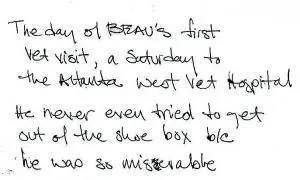 The day of BEAU's first
vet visit, a Saturday to
the Atlanta West Vet Hospital
He never even tried to get
out of the shoe box b/c
he was so miserable